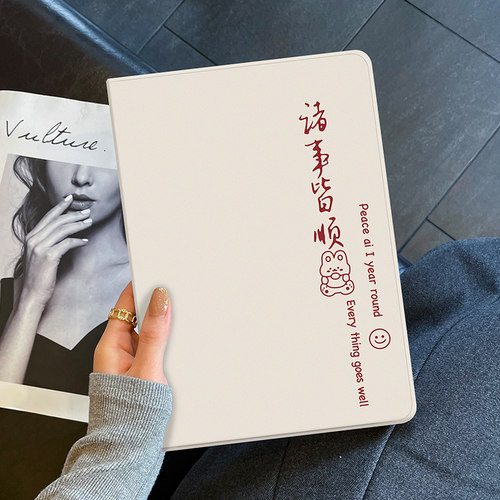 Vulture.
诸事皆顺
Peace ai I year round
Every thing goes well